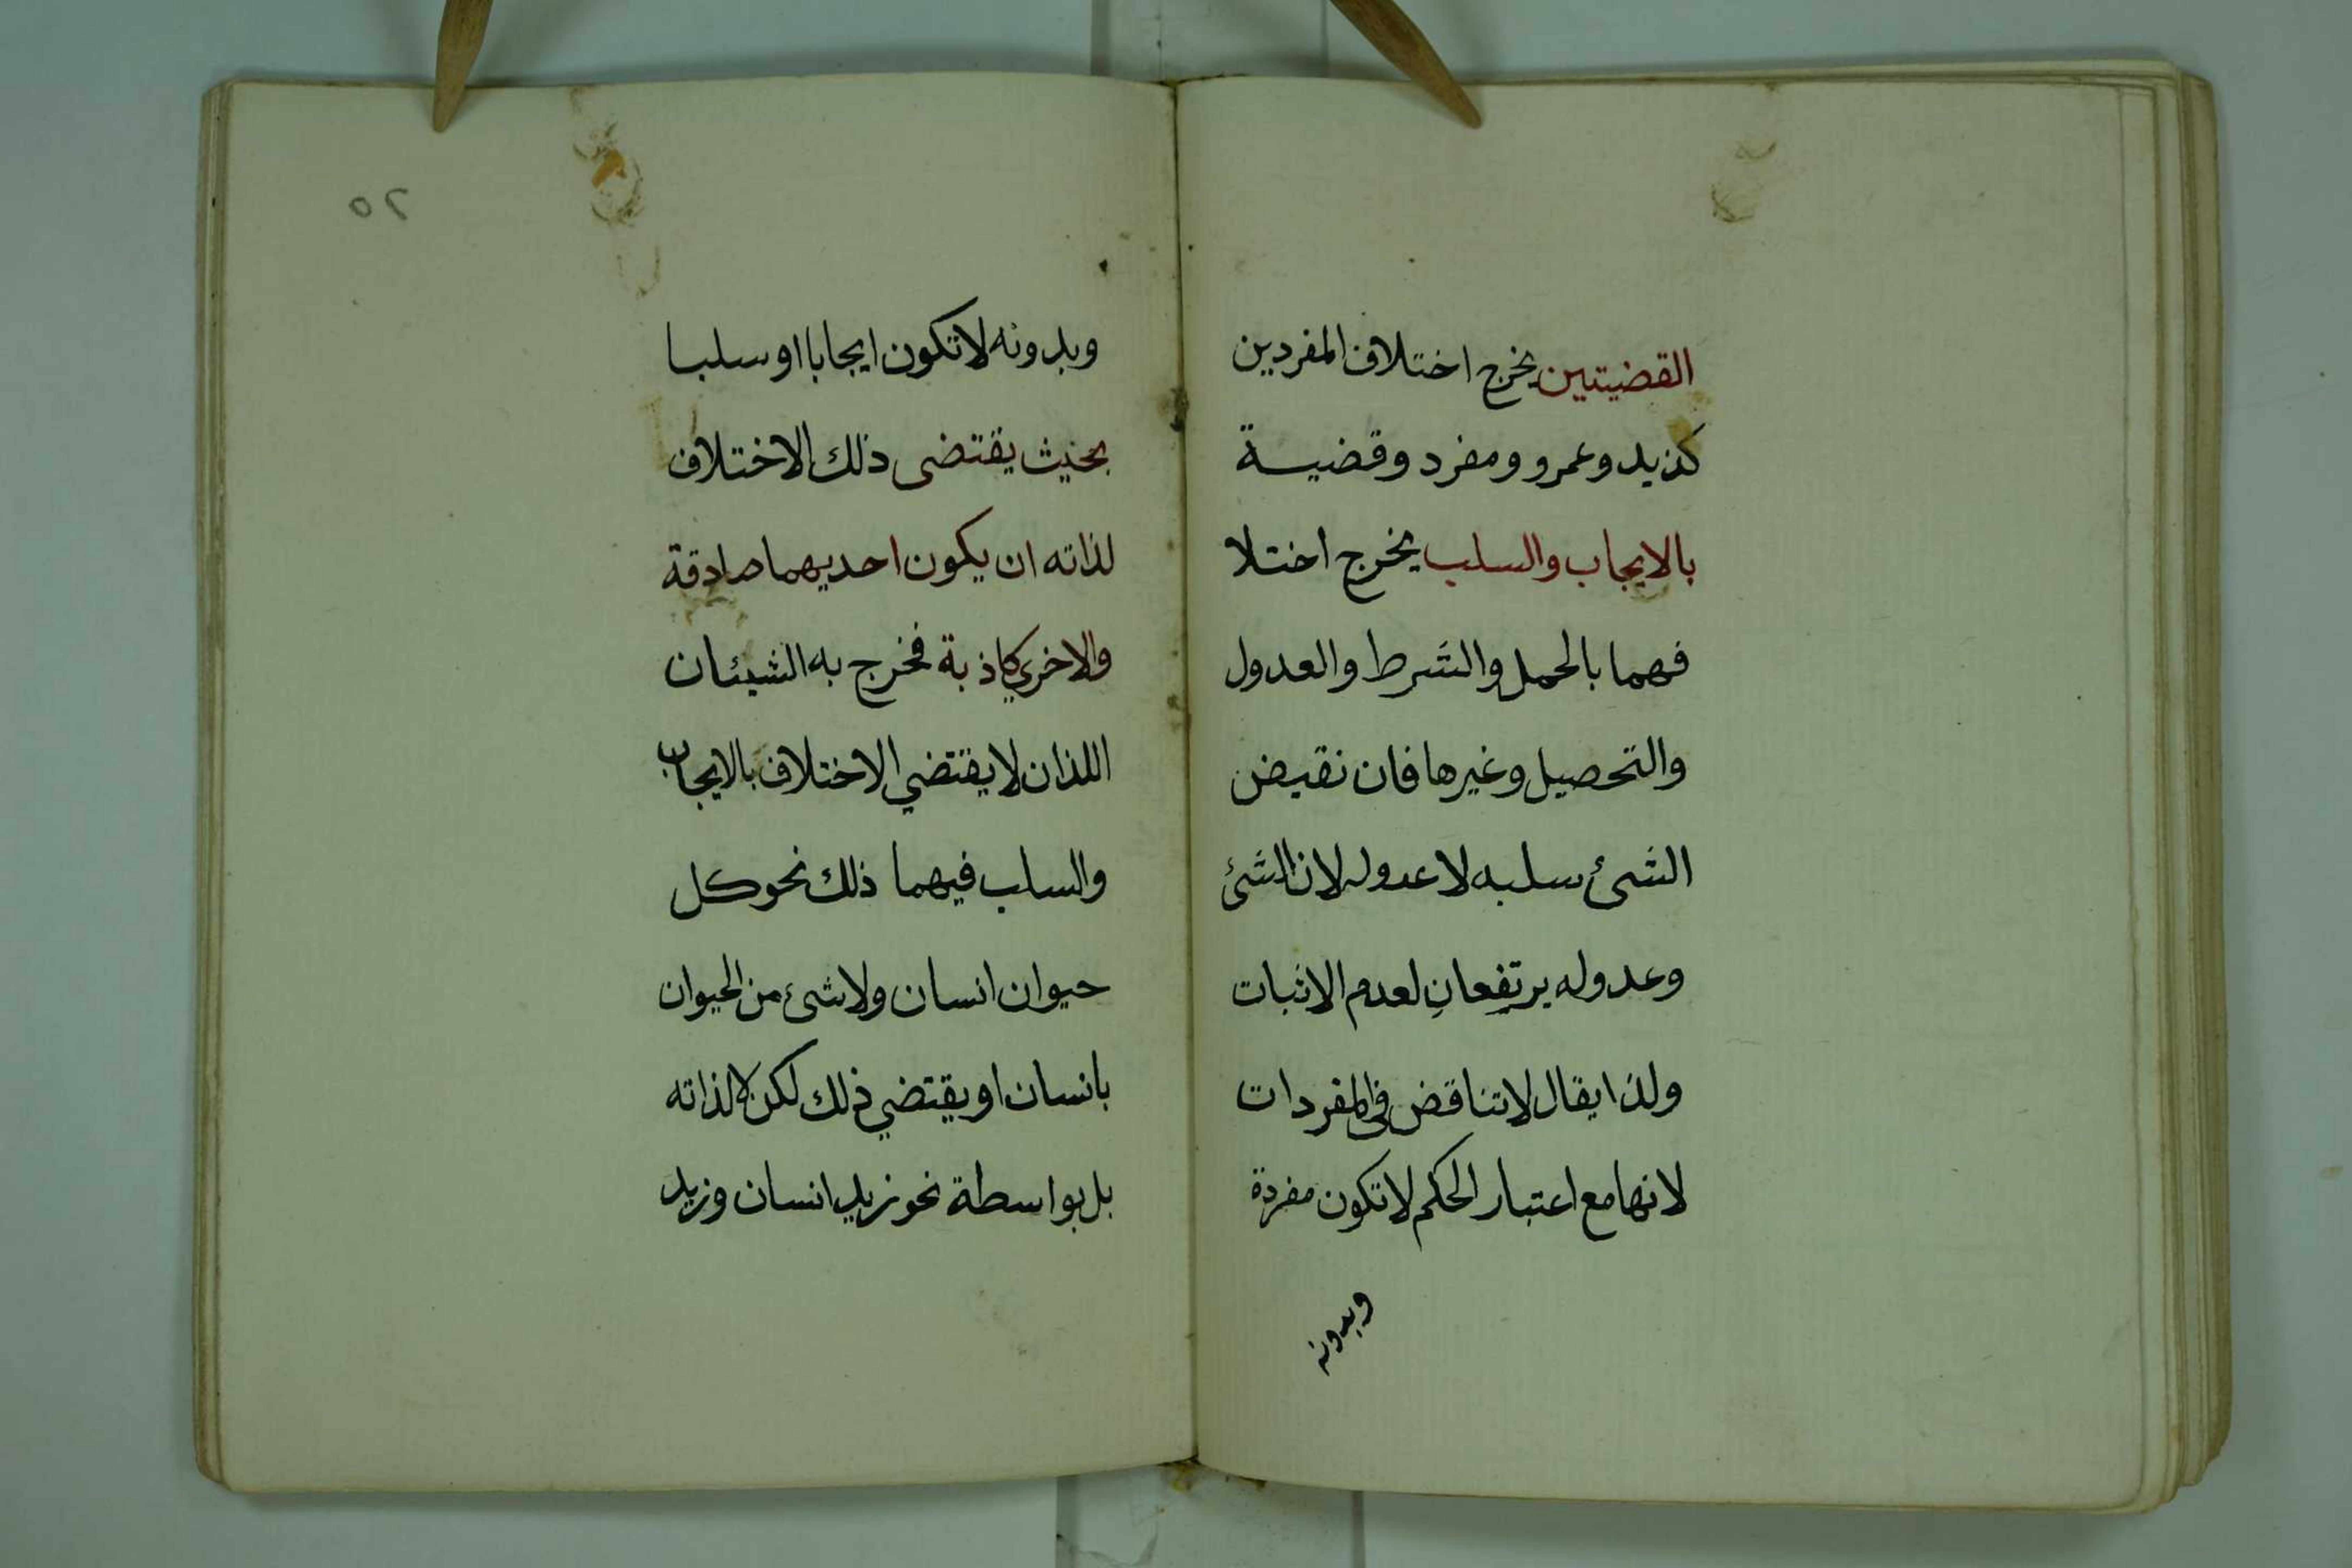 القضيتين يخرج اختلاف المفردين
كزيد وعمرو ومفرد وقضية
بالايجاب والسلب يخرج اختلا
فهما بالحمل والشرط والعدول
والتحصيل وغيرها فان نقيض
الشئ سلبه لا عدوله لان الشئ
وعدوله يرتفعان لعدم الاثبات
ولذا يقال لا تناقض فى المفردات
لانها مع اعتبار الحكم لا تكون مفردة
وبدونه
٢٥
وبدونه لا تكون ايجابا او سلبا
بحيث يقتضى ذلك الاختلاف
لذاته ان يكون احديهما صادقة
والاخرى كاذبة فخرج به الشيئان
اللذان لا يقتضي الاختلاف بالايجاب
والسلب فيهما ذلك نحو كل
حيوان انسان ولا شئ من الحيوان
بانسان او يقتضي ذلك لكن لا لذاته
بل بواسطة نحو زيد انسان وزيد